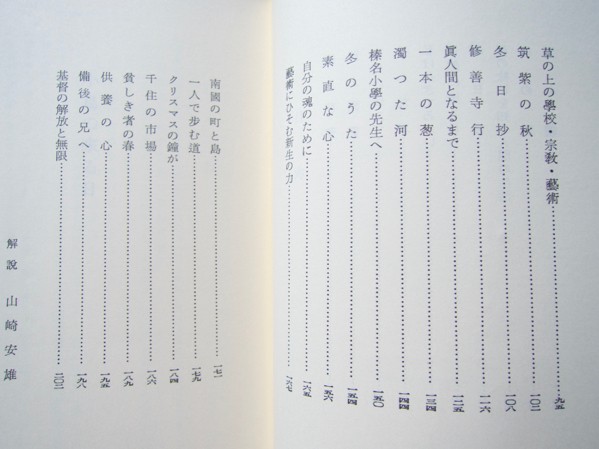 草の上の學校・宗敎・藝術……九五
筑紫の秋……一〇二
冬日抄……一〇八
修善寺行……一一六
眞人間となるまで……一二五
一本の葱……一三四
濁つた河……一四四
榛名小學の先生へ……一五〇
冬のうた……一五四
素直な心……一五六
自分の魂のために……一六五
藝術にひそむ新生の力……一六七
南國の町と島……一七一
一人で步む道……一七九
クリスマスの鐘が……一八四
千住の市場……一八六
貧しき者の春……一八九
供養の心……一九五
備後の兄へ……一九八
基督の解放と無限……二〇二
解說 山崎安雄